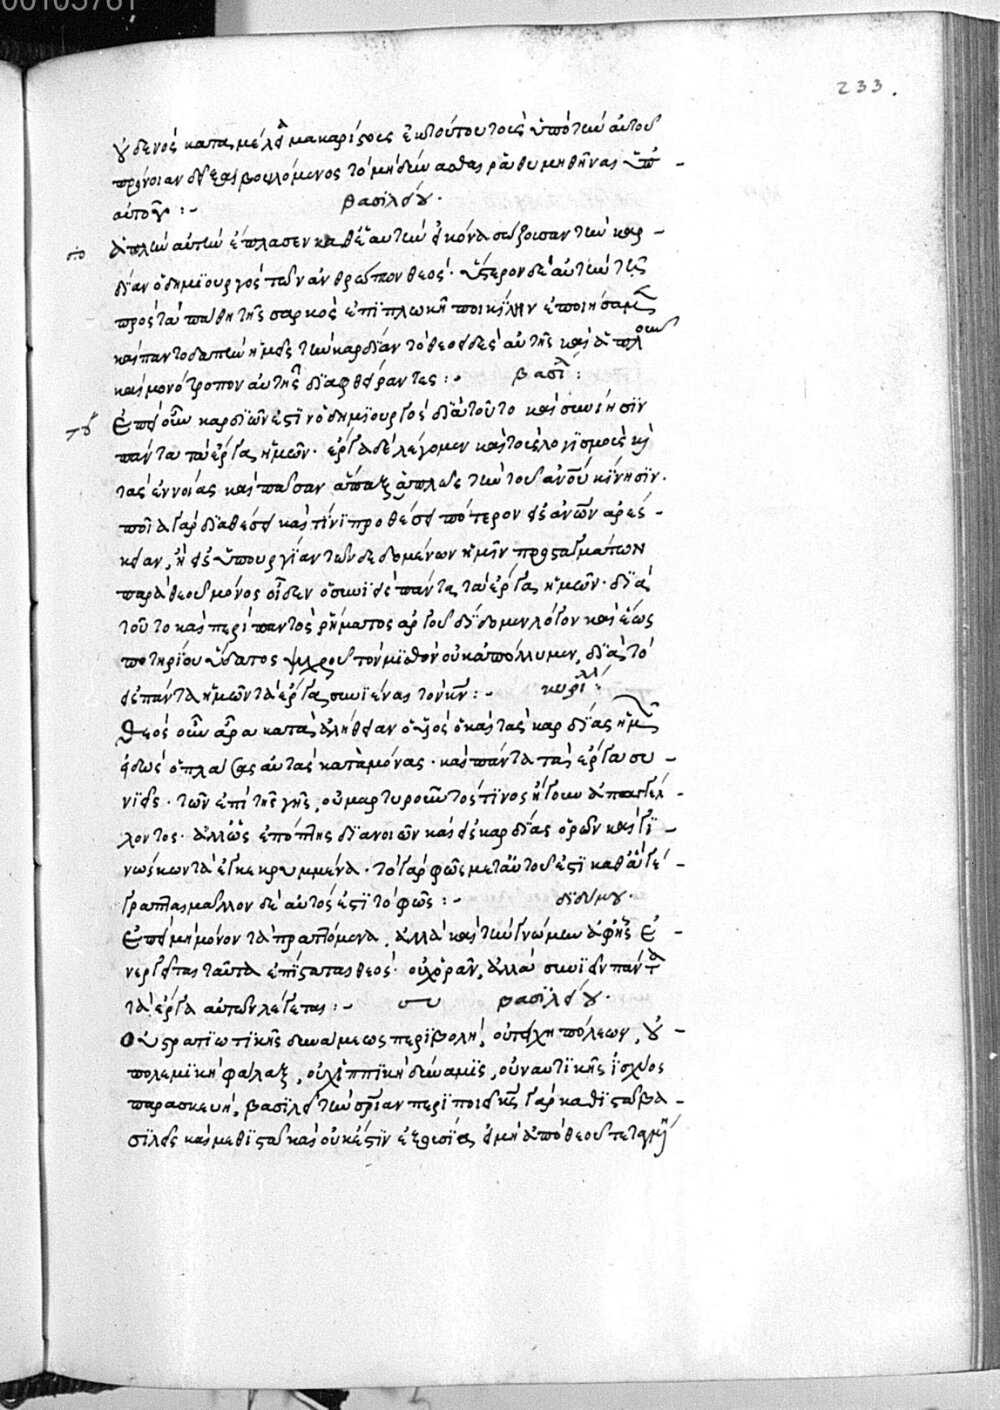 00105761
233.
οὐδενὸς καταμελεῖ μακαρίζοις ἐκ τούτου τοὺς ὑπὸ τὴν αὐτοῦ
πρόνοιαν διαβουλόμενος τὸ μηδὲν ῥαθυμηθῆναι ὑπ
αὐτοῦ :- βασιλείου.
Ἁπλὴν αὐτὴν ἔπλασεν καθ' ἑαυτὴν εἰκόνα σώζουσαν τὴν καρ-
δίαν ὁ δημιουργὸς τῶν ἀνθρώπων θεός· ὕστερον δὲ αὐτὴν τῆς
πρὸς τὰ πάθη τῆς σαρκὸς ἐπιπλοκῇ ποικίλην ἐποιήσαμεν
καὶ παντοδαπὴν ἡμεῖς τὴν καρδίαν τὸ θεοειδὲς αὐτῆς καὶ ἁπλοῦν
καὶ μονότροπον αὐτῆς διαφθείραντες :- βασιλ :
Ἐπεὶ οὖν καρδιῶν ἐστὶν ὁ δημιουργὸς διὰ τοῦτο καὶ συνίησιν
πάντα τὰ ἔργα ἡμῶν· ἔργα δὲ λέγομεν καὶ τοὺς λογισμοὺς κὶ
τὰς ἐννοίας καὶ πᾶσαν ἅπαξ ἁπλῶς τὴν τοῦ ἀνου κίνησιν.
ποία γὰρ διαθέσει καὶ τίνι προθέσει πότερον εἰς ἀνων ἀρέσ-
κειαν, ἢ εἰς ὑπουργίαν τῶν δεδομένων ἡμῖν προσταγμάτων
παρὰ θεοῦ μόνος οἶδεν ὁ συνιεὶς πάντα τὰ ἔργα ἡμῶν· διὰ
τοῦτο καὶ περὶ παντὸς ῥήματος ἀργοῦ δίδομεν λόγον καὶ ἕως
ποτηρίου ὕδατος ψυχροῦ τὸν μισθὸν οὐκ ἀπόλλυμεν, διὰ τὸ
εἰς πάντα ἡμῶν τὰ ἔργα συνιέναι τὸν κν :- κυριλλ :
Θεὸς οὖν ἄρα κατὰ ἀλήθειαν ὁ υἱὸς ὁ καὶ τὰς καρδίας ἡμῶν
εἰδὼς ὁ πλάσας αὐτὰς καταμόνας· καὶ πάντα τὰ ἔργα συ-
νιεὶς· τῶν ἐπὶ τῆς γῆς, οὐ μαρτυροῦντός τινος ἤγουν ἀπαγγέλ-
λοντος· ἀλλ' ὡς ἐπόπτης διανοιῶν καὶ εἰς καρδίας ὁρῶν καὶ γι-
νώσκων τὰ ἐγκεκρυμμένα· τὸ γὰρ φῶς μετ' αὐτοῦ ἐστὶ καθὰ γέ-
γραπται μᾶλλον δὲ αὐτὸς ἐστὶ τὸ φῶς :- διδύμου.
Ἐπεὶ μὴ μόνον τὰ πραττόμενα, ἀλλὰ καὶ τὴν γνώμην ἀφ' ἧς ἐ-
νεργεῖται ταῦτα ἐπίσταται θεός· οὐχ ὁρᾶν, ἀλλὰ συνιεῖν πάντα
τὰ ἔργα αὐτῶν λέγεται :- βασιλείου.
Οὐ στρατιωτικῆς δυνάμεως περιβολὴ, οὐ τείχη πόλεων, οὐ
πολεμικὴ φάλαξ, οὐχ ἱππικὴ δύναμις, οὐ ναυτικῆς ἰσχύος
παρασκευὴ, βασιλεῖ τὴν σρίαν περιποιεῖ κς γὰρ καθιστᾶ βα-
σιλεῖς καὶ μεθιστᾶ καὶ οὐκ ἔστιν ἐξουσία εἰ μὴ ἀπὸ θεοῦ τεταγμέ